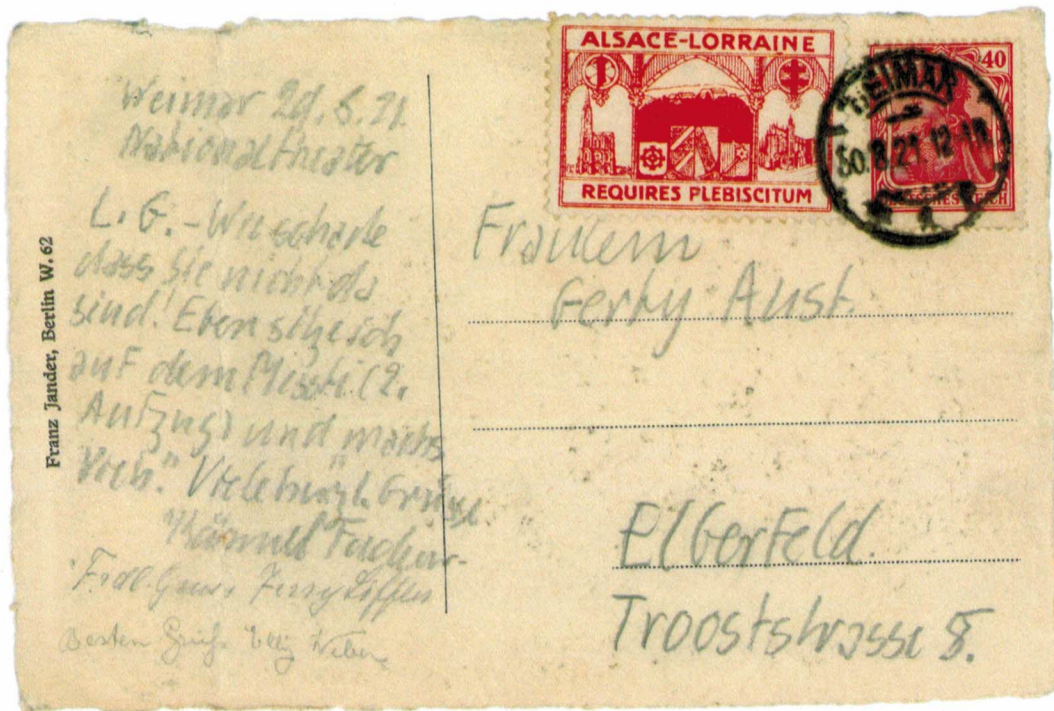 Franz Jander, Berlin W. 62
Weimar 29. 8. 21.
Nationaltheater
L. G. - Wie schade
dass Sie nicht da
sind! Eben sitze ich
auf dem (2.
Aufzug) und
Viele Grüsse
Frdl. Gruss
Besten Gruß
ALSACE-LORRAINE
REQUIRES PLEBISCITUM
40
WEIMAR
30.8.21 12-1N
DEUTSCHES REICH
Fräulein
Gerty Aust.
Elberfeld.
Trooststrasse 8.